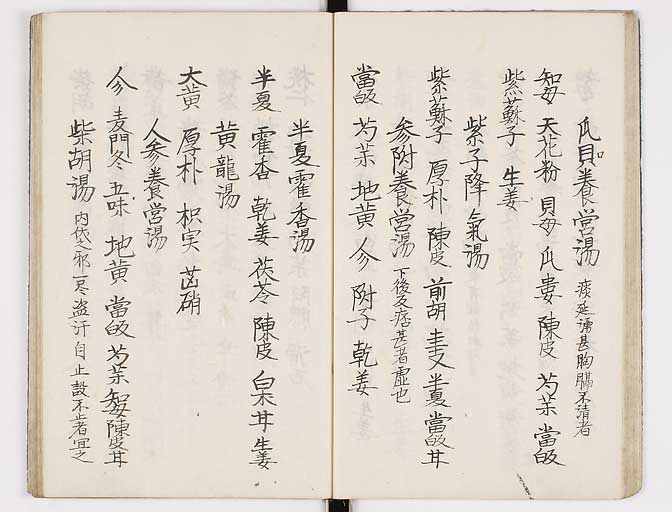 瓜貝養営湯 痰延涌甚胸膈不清者
知母 天花粉 貝母 瓜蔞 陳皮 芍薬 當皈
紫蘇子 生姜
紫子降氣湯
紫蘇子 厚朴 陳皮 前胡 半夏 當皈 甘
参附養営湯 下後反痞甚者虚也
當皈 芍薬 地黄 参 附子 乾姜
半夏霍香湯
半夏 霍香 乾姜 茯苓 陳皮 白朮 甘 生姜
黄龍湯
大黄 厚朴 枳実 芒硝
人参養営湯
参 麦門冬 五味 地黄 當皈 芍薬 知母 陳皮 甘
柴胡湯 内伐之邪一尽盗汗自止設不止者宜之